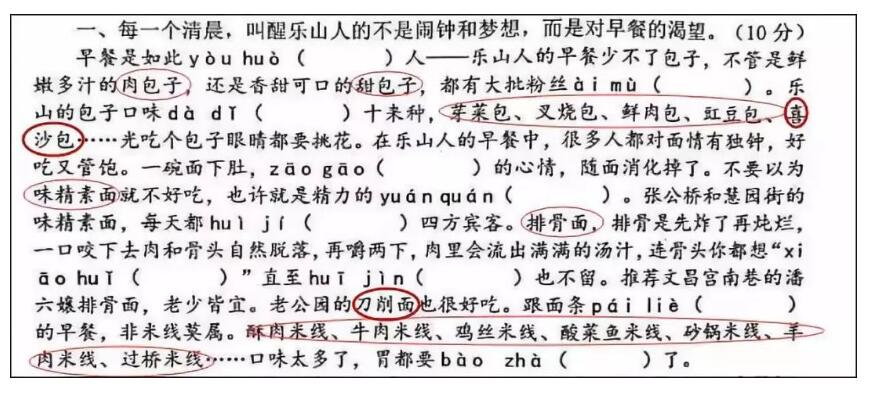 一、每一个清晨，叫醒乐山人的不是闹钟和梦想，而是对早餐的渴望。（10分）
早餐是如此yòu huò（　　　）人——乐山人的早餐少不了包子，不管是鲜
嫩多汁的肉包子，还是香甜可口的甜包子，都有大批粉丝ài mù（　　　）。乐
山的包子口味dà dǐ（　　　）十来种，芽菜包、叉烧包、鲜肉包、豇豆包、喜
沙包……光吃个包子眼睛都要挑花。在乐山人的早餐中，很多人都对面情有独钟，好
吃又管饱。一碗面下肚，zāo gāo（　　　）的心情，随面消化掉了。不要以为
味精素面就不好吃，也许就是精力的yuán quán（　　　）。张公桥和慧园街的
味精素面，每天都huì jí（　　　）四方宾客。排骨面，排骨是先炸了再炖烂，
一口咬下去肉和骨头自然脱落，再嚼两下，肉里会流出满满的汤汁，连骨头你都想“xi
āo huǐ（　　　）”直至huī jìn（　　　）也不留。推荐文昌宫南巷的潘
六孃排骨面，老少皆宜。老公园的刀削面也很好吃。跟面条pái liè（　　　）
的早餐，非米线莫属。酥肉米线、牛肉米线、鸡丝米线、酸菜鱼米线、砂锅米线、羊
肉米线、过桥米线……口味太多了，胃都要bào zhà（　　　）了。